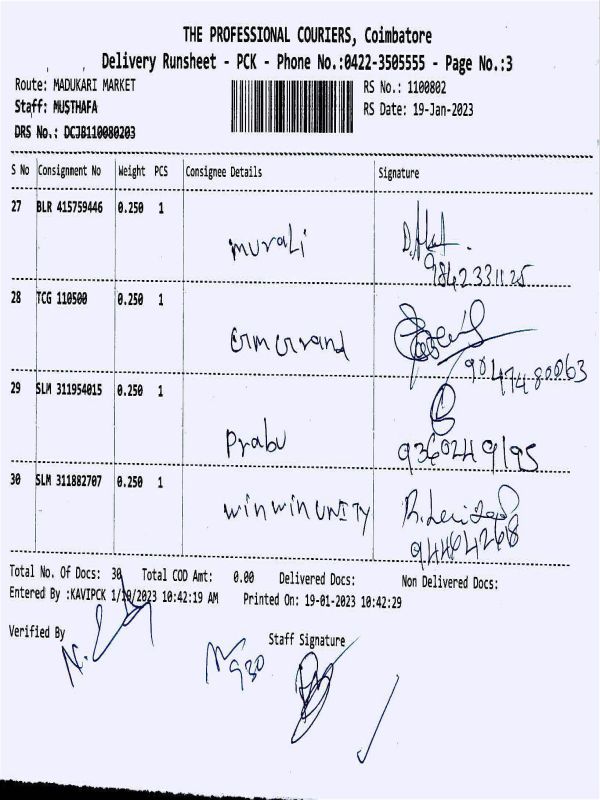 THE PROFESSIONAL COURIERS, Coimbatore
Delivery Runsheet - PCK - Phone No.:0422-3505555 - Page No.:3
Route: MADUKARI MARKET
RS No.: 1100802
Staff: MUSTHAFA
RS Date: 19-Jan-2023
DRS No.: DCJB110080203
S No Consignment No Weight PCS Consignee Details Signature
27 BLR 415759446 0.250 1
murali
9842331125
28 TCG 110500 0.250 1
9047480063
29 SLM 311954015 0.250 1
Prabu
9360249195
30 SLM 311882707 0.250 1
winwin UNITY
Total No. Of Docs: 30 Total COD Amt: 0.00 Delivered Docs: Non Delivered Docs:
Entered By :KAVIPCK 1/19/2023 10:42:19 AM Printed On: 19-01-2023 10:42:29
Verified By
Staff Signature